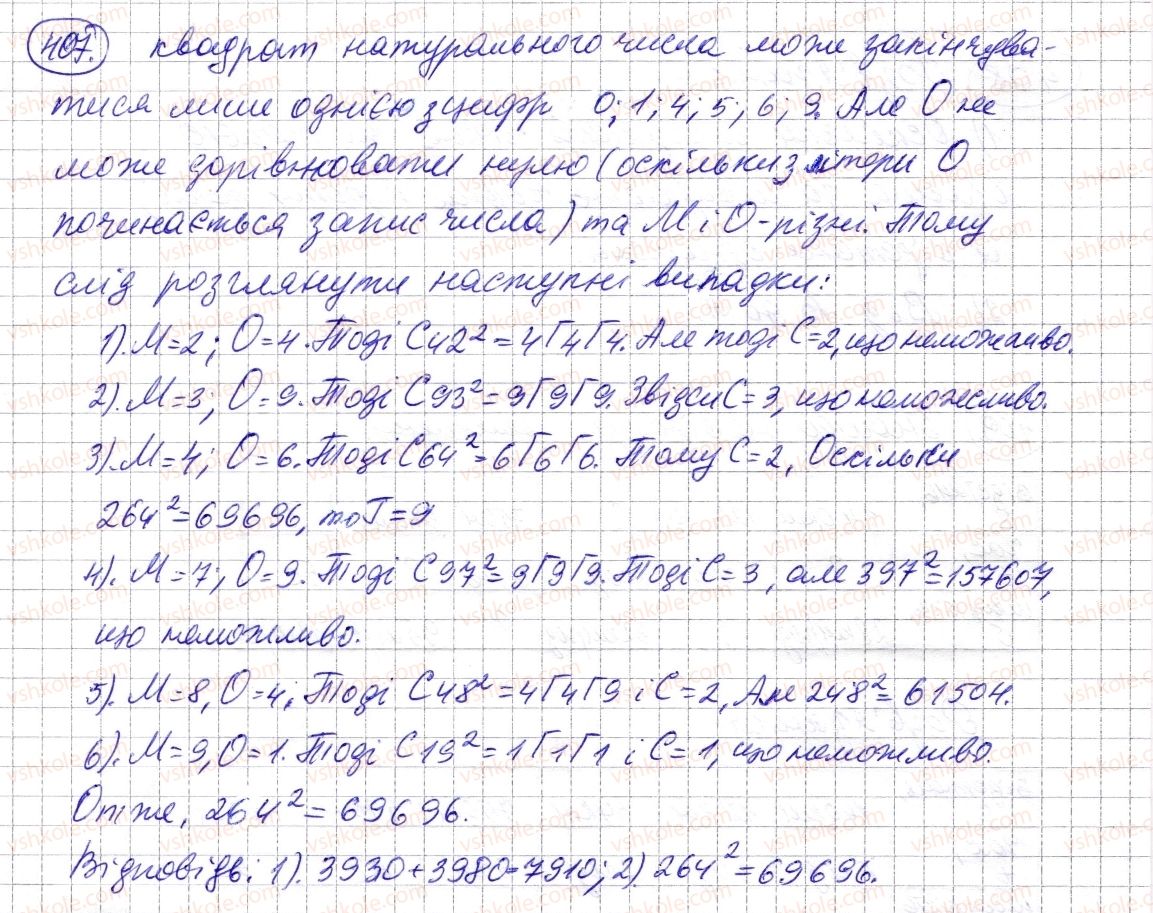 407. квадрат натурального числа може закінчува-
тися лише однією з цифр 0; 1; 4; 5; 6; 9. Але О не
може дорівнювати нулю (оскільки з літери О
починається запис числа) та М і О - різні. Тому
слід розглянути наступні випадки:
1). М=2; О=4. Тоді С42² = 4Г4Г4. Але тоді С=2, що неможливо.
2). М=3; О=9. Тоді С93² = 9Г9Г9. Звідси С=3, що неможливо.
3). М=4; О=6. Тоді С64² = 6Г6Г6. Тому С=2, Оскільки
264² = 69696, то Г=9
4). М=7; О=9. Тоді С97² = 9Г9Г9. Тоді С=3, але 397² = 157607,
що неможливо.
5). М=8, О=4; Тоді С48² = 4Г4Г9 і С=2, Але 248² = 61504.
6). М=9, О=1. Тоді С19² = 1Г1Г1 і С=1, що неможливо.
Отже, 264² = 69696.
Відповідь: 1). 3930+3980=7910; 2). 264² = 69696.